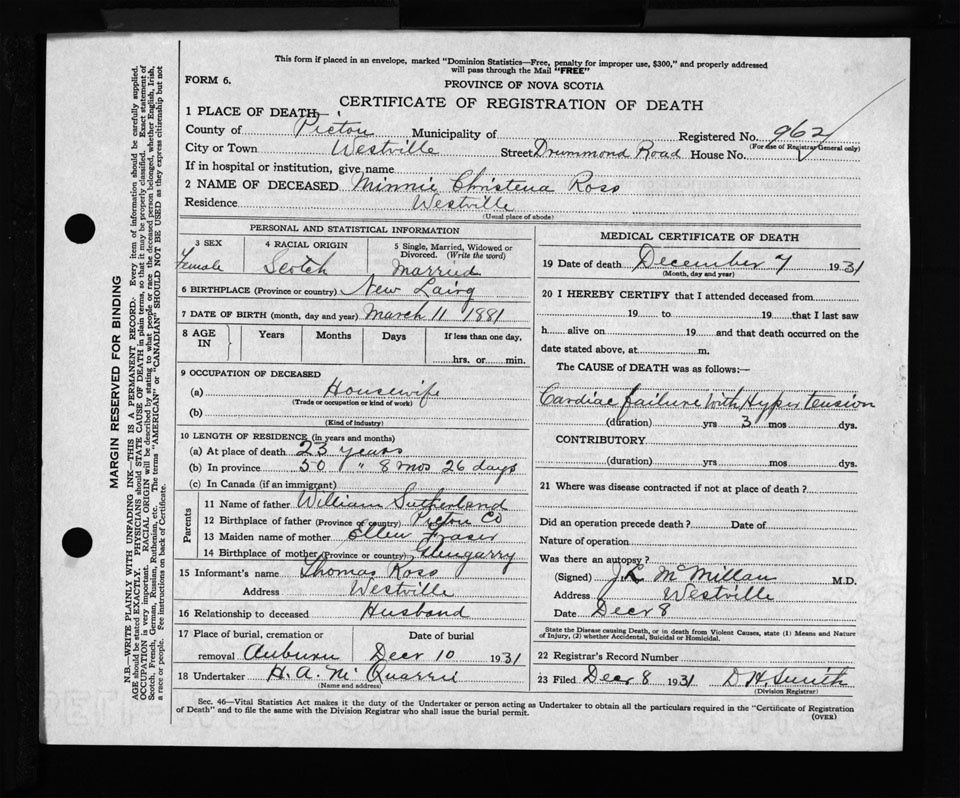 This form if placed in an envelope, marked "Dominion Statistics—Free, penalty for improper use, $300," and properly addressed
will pass through the Mail "FREE"
FORM 6.
PROVINCE OF NOVA SCOTIA
CERTIFICATE OF REGISTRATION OF DEATH
1 PLACE OF DEATH—
County of Pictou Municipality of Registered No. 962
(For use of Registrar General only)
City or Town Westville Street Drummond Road House No.
If in hospital or institution, give name
2 NAME OF DECEASED Minnie Christena Ross
Residence Westville
(Usual place of abode)
PERSONAL AND STATISTICAL INFORMATION
3 SEX 4 RACIAL ORIGIN 5 Single, Married, Widowed or
Divorced. (Write the word)
Female Scotch Married
6 BIRTHPLACE (Province or country) New Lairg
7 DATE OF BIRTH (month, day and year) March 11 1881
8 AGE IN Years Months Days If less than one day,
hrs. or min.
9 OCCUPATION OF DECEASED
(a) Housewife
(Trade or occupation or kind of work)
(b)
(Kind of industry)
10 LENGTH OF RESIDENCE (in years and months)
(a) At place of death 23 years
(b) In province 50 " 8 mos 26 days
(c) In Canada (if an immigrant)
Parents
11 Name of father William Sutherland
12 Birthplace of father (Province of country) Picton Co
13 Maiden name of mother Ellen Fraser
14 Birthplace of mother (Province or country) Glengarry
15 Informant's name Thomas Ross
Address Westville
16 Relationship to deceased Husband
17 Place of burial, cremation or Date of burial
removal Auburn Decr 10 1931
18 Undertaker H. A. McQuarrie
(Name and address)
MEDICAL CERTIFICATE OF DEATH
19 Date of death December 7 1931
(Month, day and year)
20 I HEREBY CERTIFY that I attended deceased from
19 to 19 that I last saw
h alive on 19 and that death occurred on the
date stated above, at m.
The CAUSE of DEATH was as follows:—
Cardiac failure (with Hypertension
(duration) yrs 3 mos dys.
CONTRIBUTORY
(duration) yrs. mos. dys.
21 Where was disease contracted if not at place of death?
Did an operation precede death? Date of
Nature of operation
Was there an autopsy?
(Signed) J. L McMillan M.D.
Address Westville
Date Decr 8
State the Disease causing Death, or in death from Violent Causes, state (1) Means and Nature
of Injury, (2) whether Accidental, Suicidal or Homicidal.
22 Registrar's Record Number
23 Filed Decr 8 1931 D H, Smith
(Division Registrar)
Sec. 46—Vital Statistics Act makes it the duty of the Undertaker or person acting as Undertaker to obtain all the particulars required in the "Certificate of Registration
of Death" and to file the same with the Division Registrar who shall issue the burial permit.
(OVER)
MARGIN RESERVED FOR BINDING
N.B.—WRITE PLAINLY WITH UNFADING INK—THIS IS A PERMANENT RECORD. Every item of information should be carefully supplied.
AGE should be stated EXACTLY. PHYSICIANS should STATE CAUSE OF DEATH in plain terms, so that it may be properly classified. Exact statement of
OCCUPATION is very important. RACIAL ORIGIN will be described by stating to what people or race the deceased person belonged, whether English, Irish,
Scotch, French, German, Russian, Ruthenian, etc. The terms "AMERICAN" or "CANADIAN" SHOULD NOT BE USED as they express citizenship but not
a race or people. Fee instructions on back of Certificate.